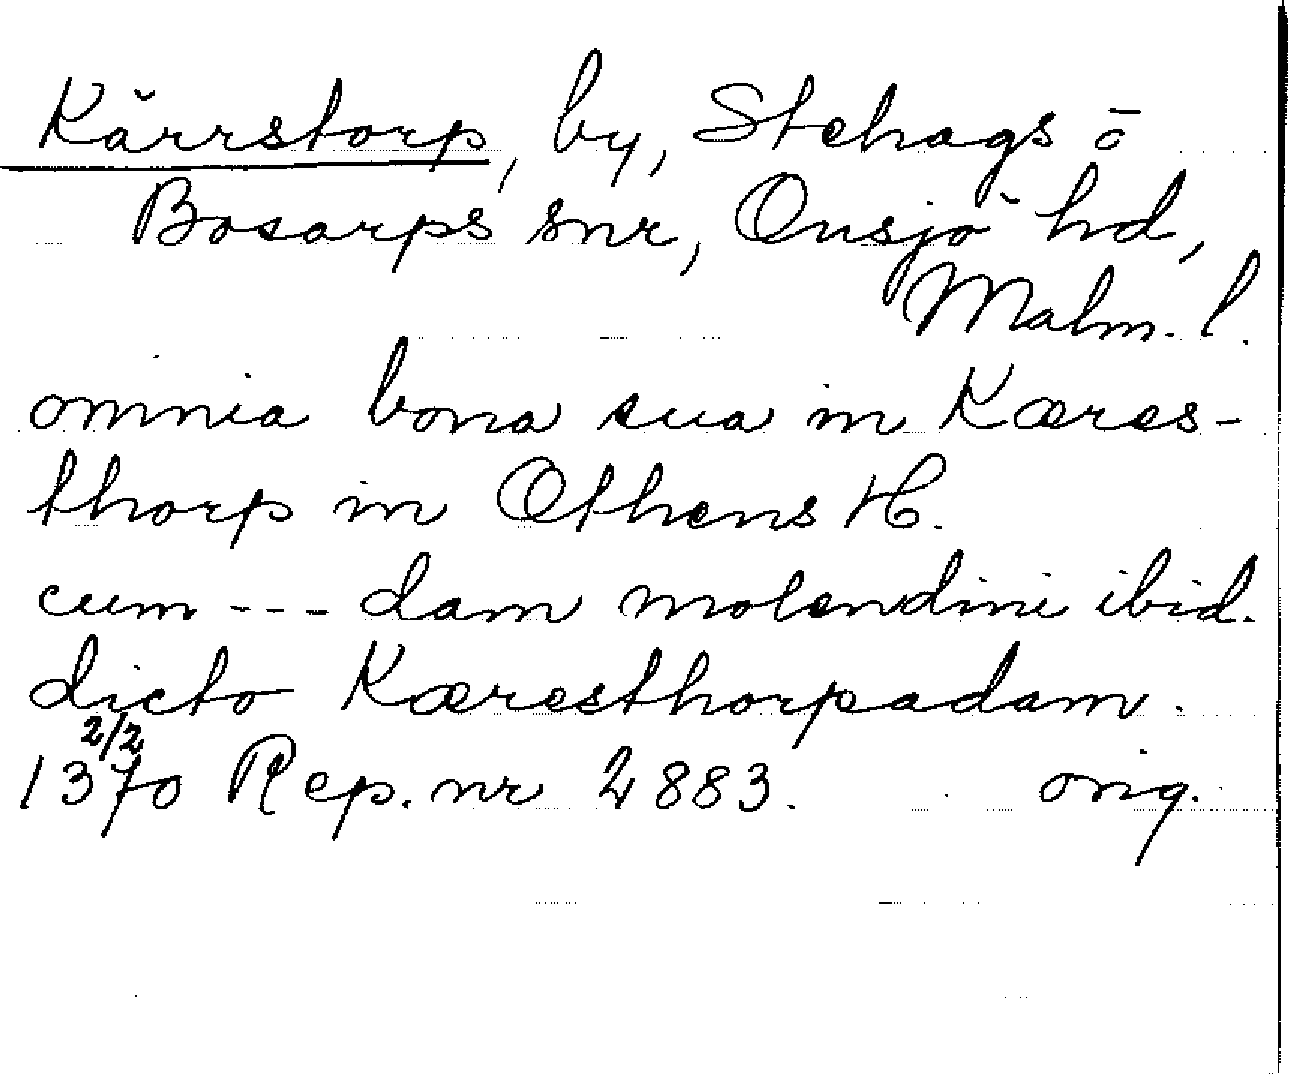 Kärrstorp, by, Stehags o
Bosarps snr, Onsjö hd,
Malm. l.
omnia bona sua in Kæres-
thorp in Othens H.
cum --- dam molendini ibid.
dicto Kæresthorpadam.
2/2
1370 Rep. nr 2883. orig.